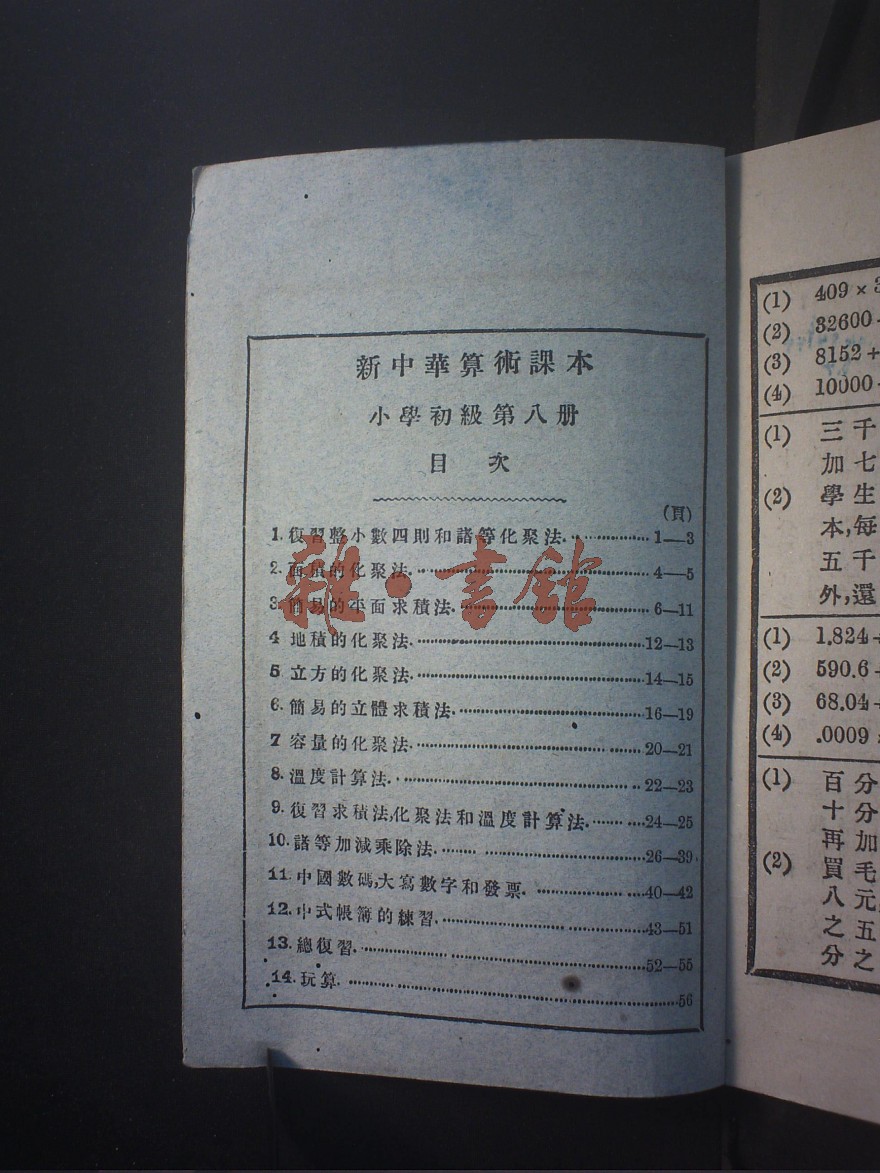 新中華算術課本
小學初級第八册
目 次
(頁)
1. 復習整小數四則和諸等化聚法 1—3
2. 面積的化聚法 4—5
3. 簡易的平面求積法 6—11
4 地積的化聚法 12—13
5 立方的化聚法 14—15
6. 簡易的立體求積法 16—19
7 容量的化聚法 20—21
8. 溫度計算法 22—23
9. 復習求積法,化聚法和溫度計算法 24—25
10. 諸等加減乘除法 26—39
11. 中國數碼,大寫數字和發票 40—42
12. 中式帳簿的練習 43—51
13. 總復習 52—55
14. 玩算 56
雜·書館
(1) 409 × 3
(2) 32600
(3) 8152 +
(4) 10000
(1) 三千
加七
(2) 學生
本,每
五千
外,還
(1) 1.824
(2) 590.6
(3) 68.04
(4) .0009
(1) 百分
十分
再加
(2) 買毛
八元
之五
分之